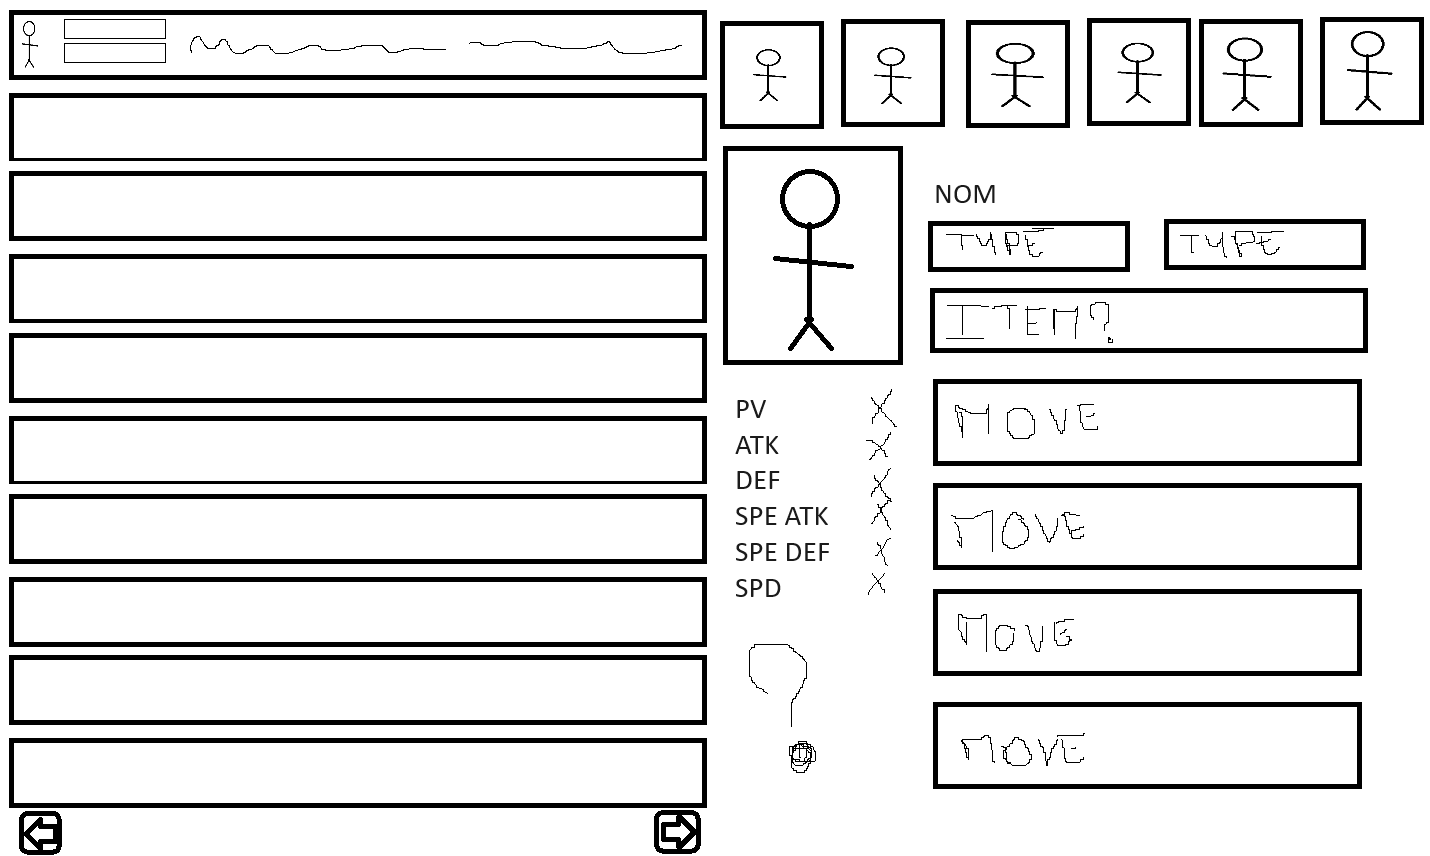 NOM
TYPE TYPE
ITEM?
PV X
ATK X
DEF X
SPE ATK X
SPE DEF X
SPD X
?
MOVE
MOVE
MOVE
MOVE